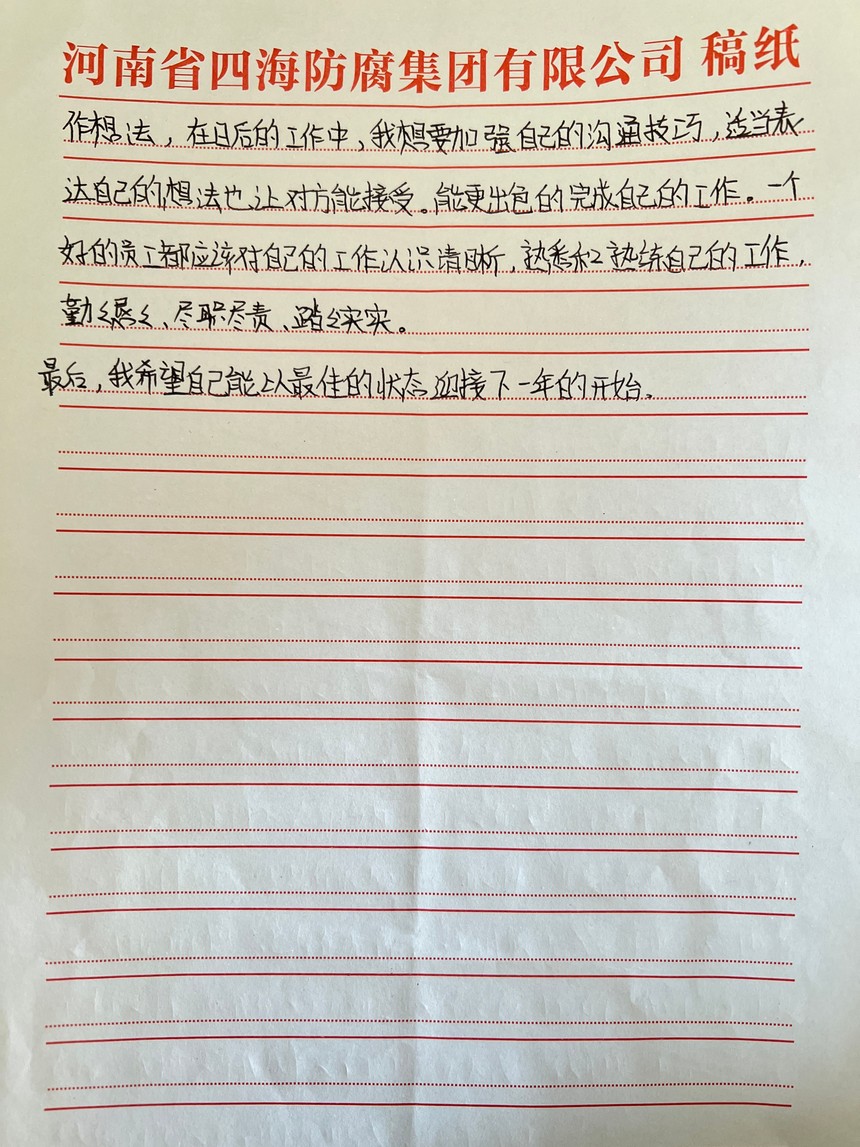 河南省四海防腐集团有限公司 稿纸
作想法，在日后的工作中，我想要加强自己的沟通技巧，适当表
达自己的想法也让对方能接受。能更出色的完成自己的工作。一个
好的员工都应该对自己的工作认识清晰，熟悉和熟练自己的工作，
勤勤恳恳、尽职尽责、踏踏实实。
最后，我希望自己能以最佳的状态迎接下一年的开始。